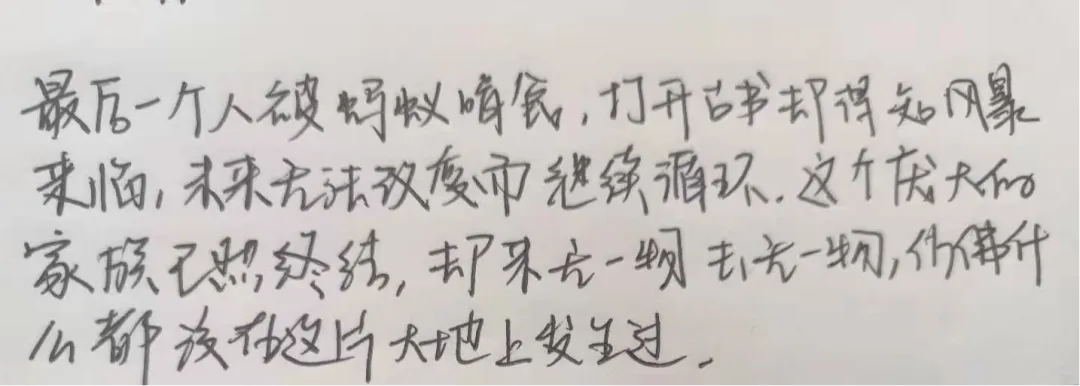 最后一个人被蚂蚁啃食,打开古书却得知风暴
来临,未来无法改变而继续循环.这个庞大的
家族已然终结,却来无一物去无一物,仿佛什
么都没在这片大地上发生过.